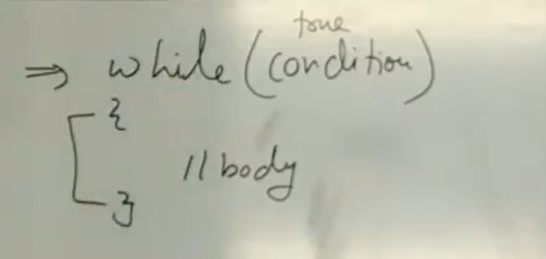 true
⇒ while (condition)
{
//body
}